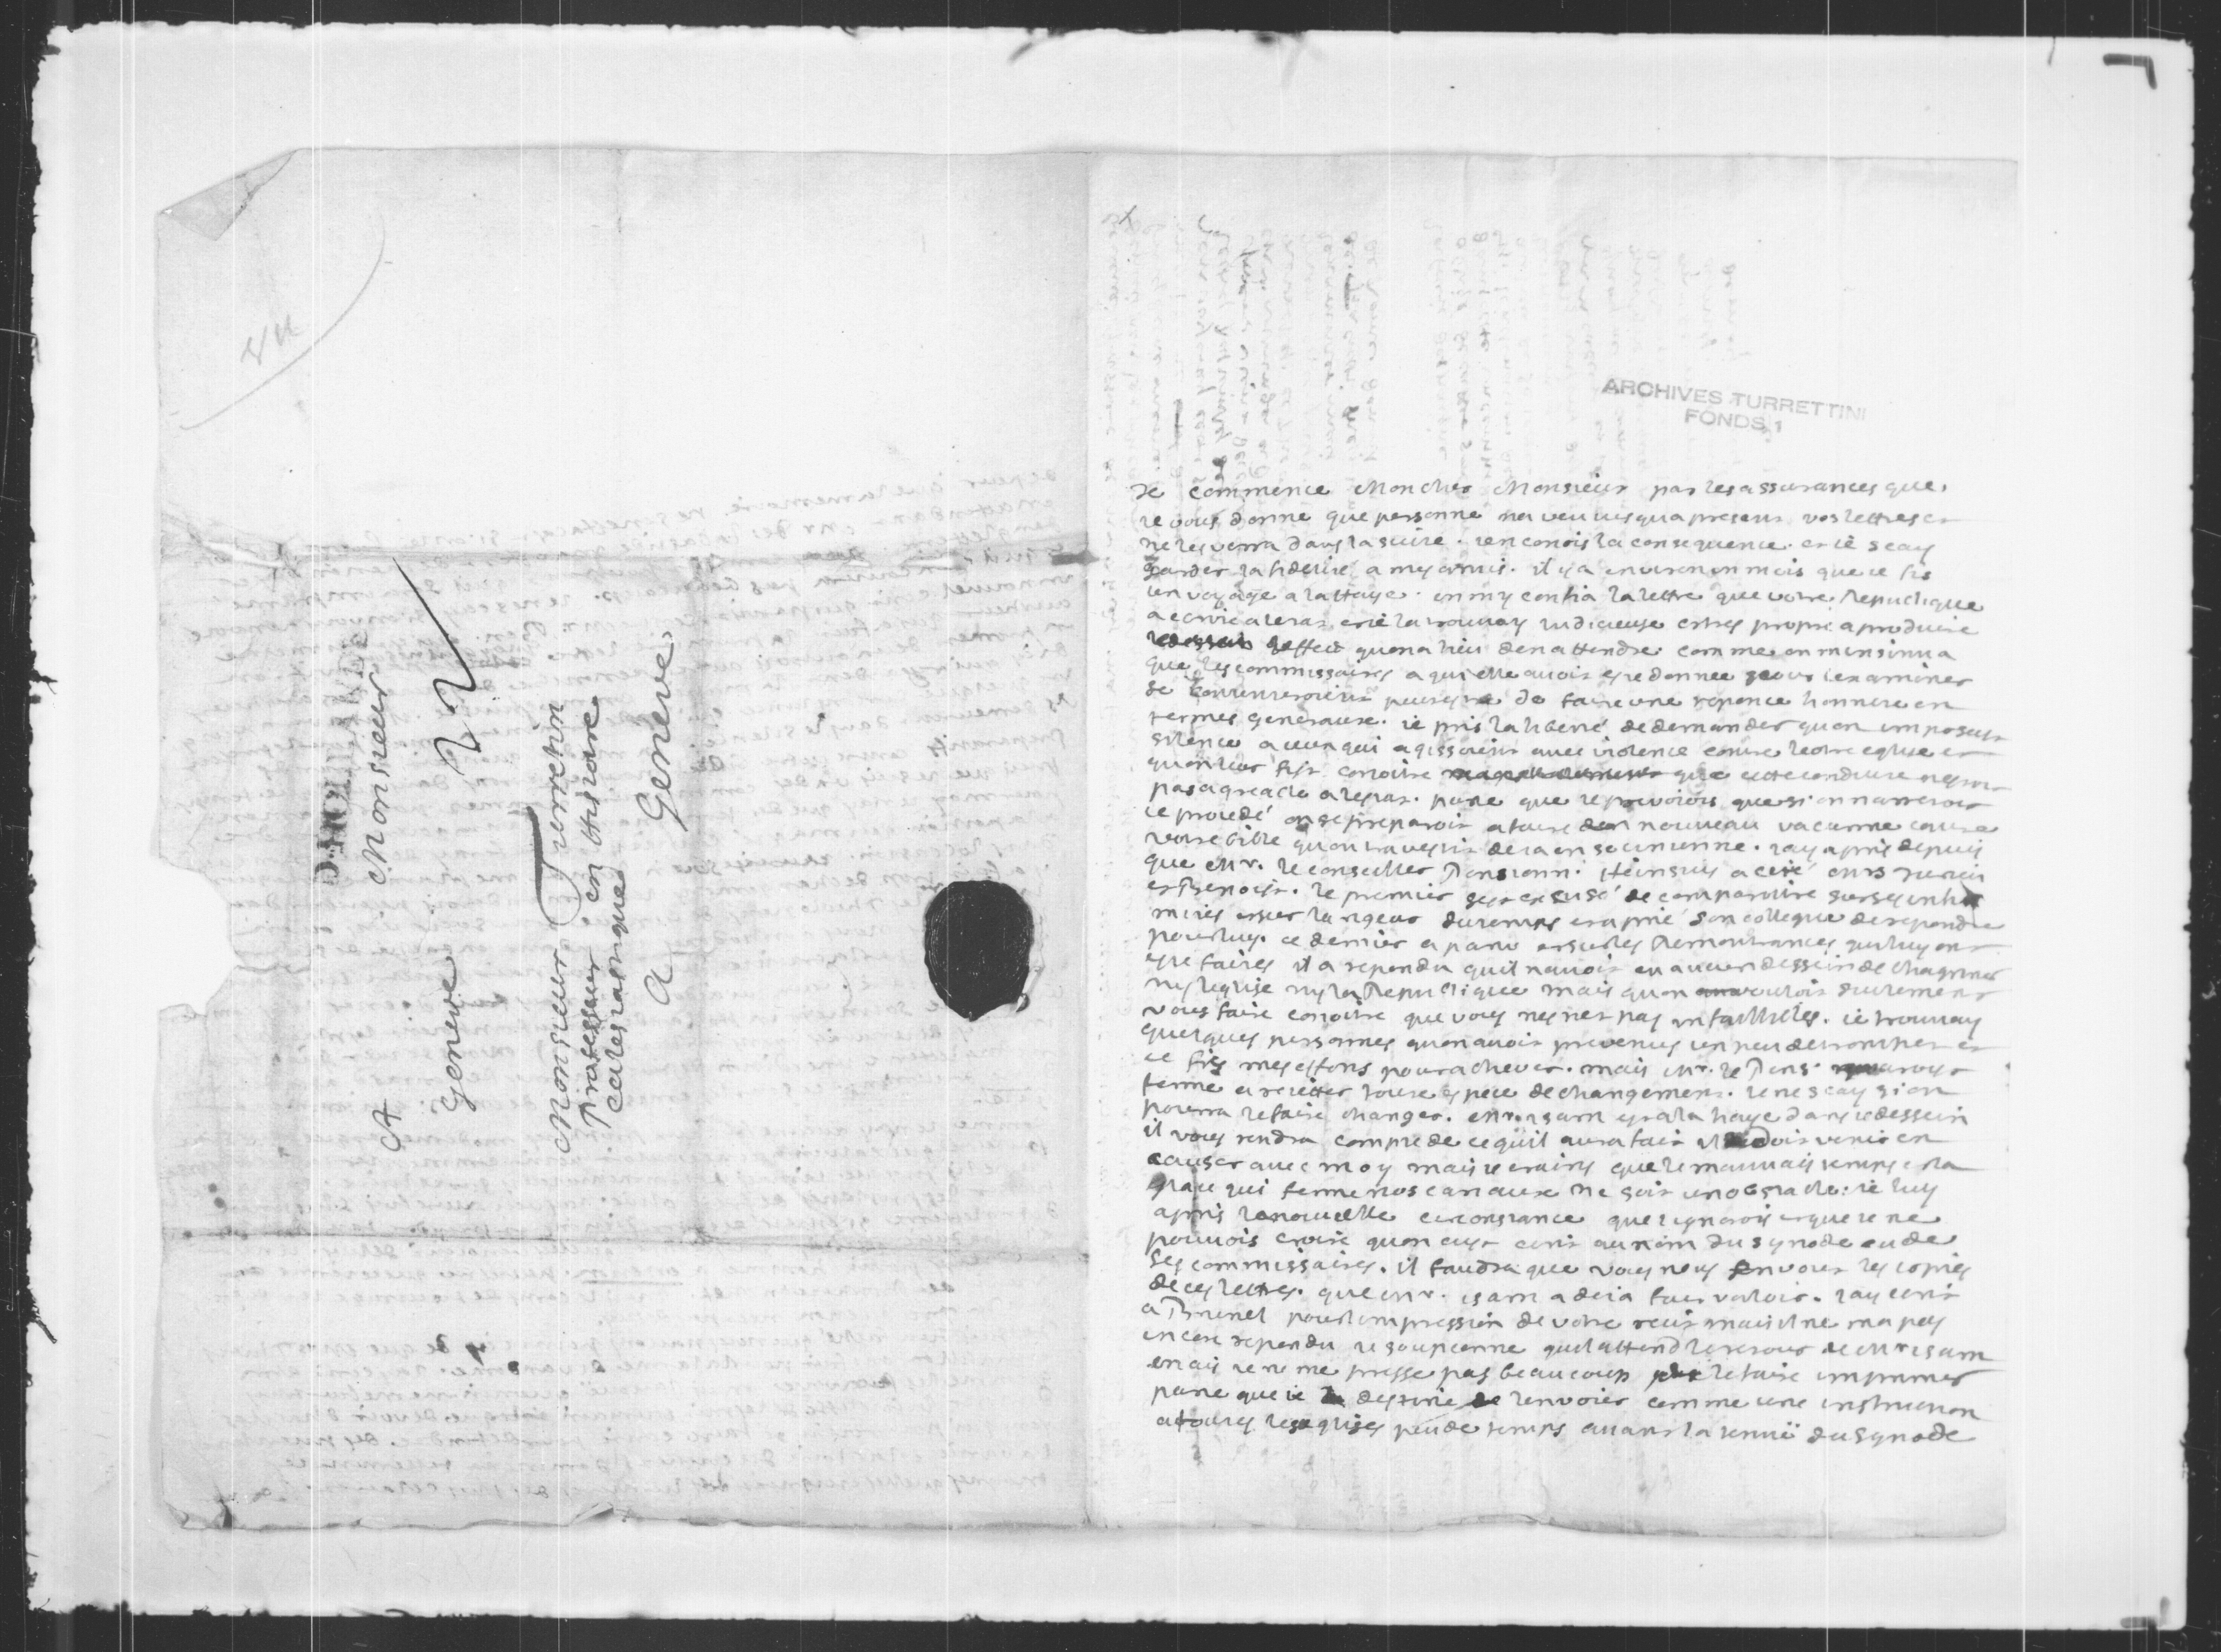 A Monsieur
Geneve
Monsieur Turrettin
Professeur en Histoire
Ecclesiastique
a Geneve
ARCHIVES TURRETTINI
FONDS 1
Je commence Mon cher Monsieur par les assurances que
je vous donne que personne na veu jusqua presens vos lettres et
ne les verra dans la suite. jen conois la consequence. et ie scay
garder la fidelité a mes amis. il y a environ un mois que ie fis
un voyage a la Haye. on my confia la lettre que votre Republique
a ecrite a lestat et ie la trouvay judicieuse et tres propre a produire
leffect quon a lieu den attendre. comme on minsinua
que les commissaires a qui elle avoit este donnee pour lexaminer
se contenteroient peutestre de faire une reponce honneste en
termes generaux. ie pris la liberté de demander quon imposast
silence a ceux qui agissoient avec violence contre votre eglise et
quon leur fist conoitre que cette conduite nestoit
pas agreable a lestat. parce que ie prevoiois que si on narrestoit
ce procedé on se preparoit a faire nouveau vacarme contre
votre bible quon travestit deja en socinienne. jay apris depuis
que Mr. le conseiller Pensionn. Heinsius a cité Mrs
et Benoist. le premier sest excusé de comparoitre sur ses infir
mités et sur la rigeur du temps et a prié son collegue de repondre
pour luy. ce dernier a paru et sur les Remontrances quon luy ont
este faites il a repondu quil navoit eu aucun dessein de chagriner
ny leglise ny la Republique mais quon vouloit seulement
vous faire conoitre que vous nestes pas infaillibles. ie trouvay
quelques personnes quon avoit prevenues un peu detrompees et
ie fis mes efforts pour achever. mais Mr. le Pens.
ferme a rejetter toute espece de changement. ie ne scay si on
pourra le faire changer. Mr. isarn est a la haye dans ce dessein
il vous rendra compte de ce quil aura fait il doit venir en
causer avec moy mais ie crains que le mauvais temps et la
glace qui ferme nos canaux ne soit un obstacle. ie luy
apris la nouvelle circonstance que jignorois et que ie ne
pouvois croire quon eust ecrit au nom du synode ou de
ses commissaires. il faudra que vous nous envoiez les copies
de ces lettres. que Mr. isarn a deja fait valoir. jay ecrit
a Brunel pour limpression de votre recit mais il ne ma pas
encore repondu ie soupconne quil attend le retour de Mr isarn
mais ie ne me presse pas beaucoup le faire imprimer
parce que ie destine lenvoier comme une instruction
a toutes les eglises peu de temps avant la tenue du synode